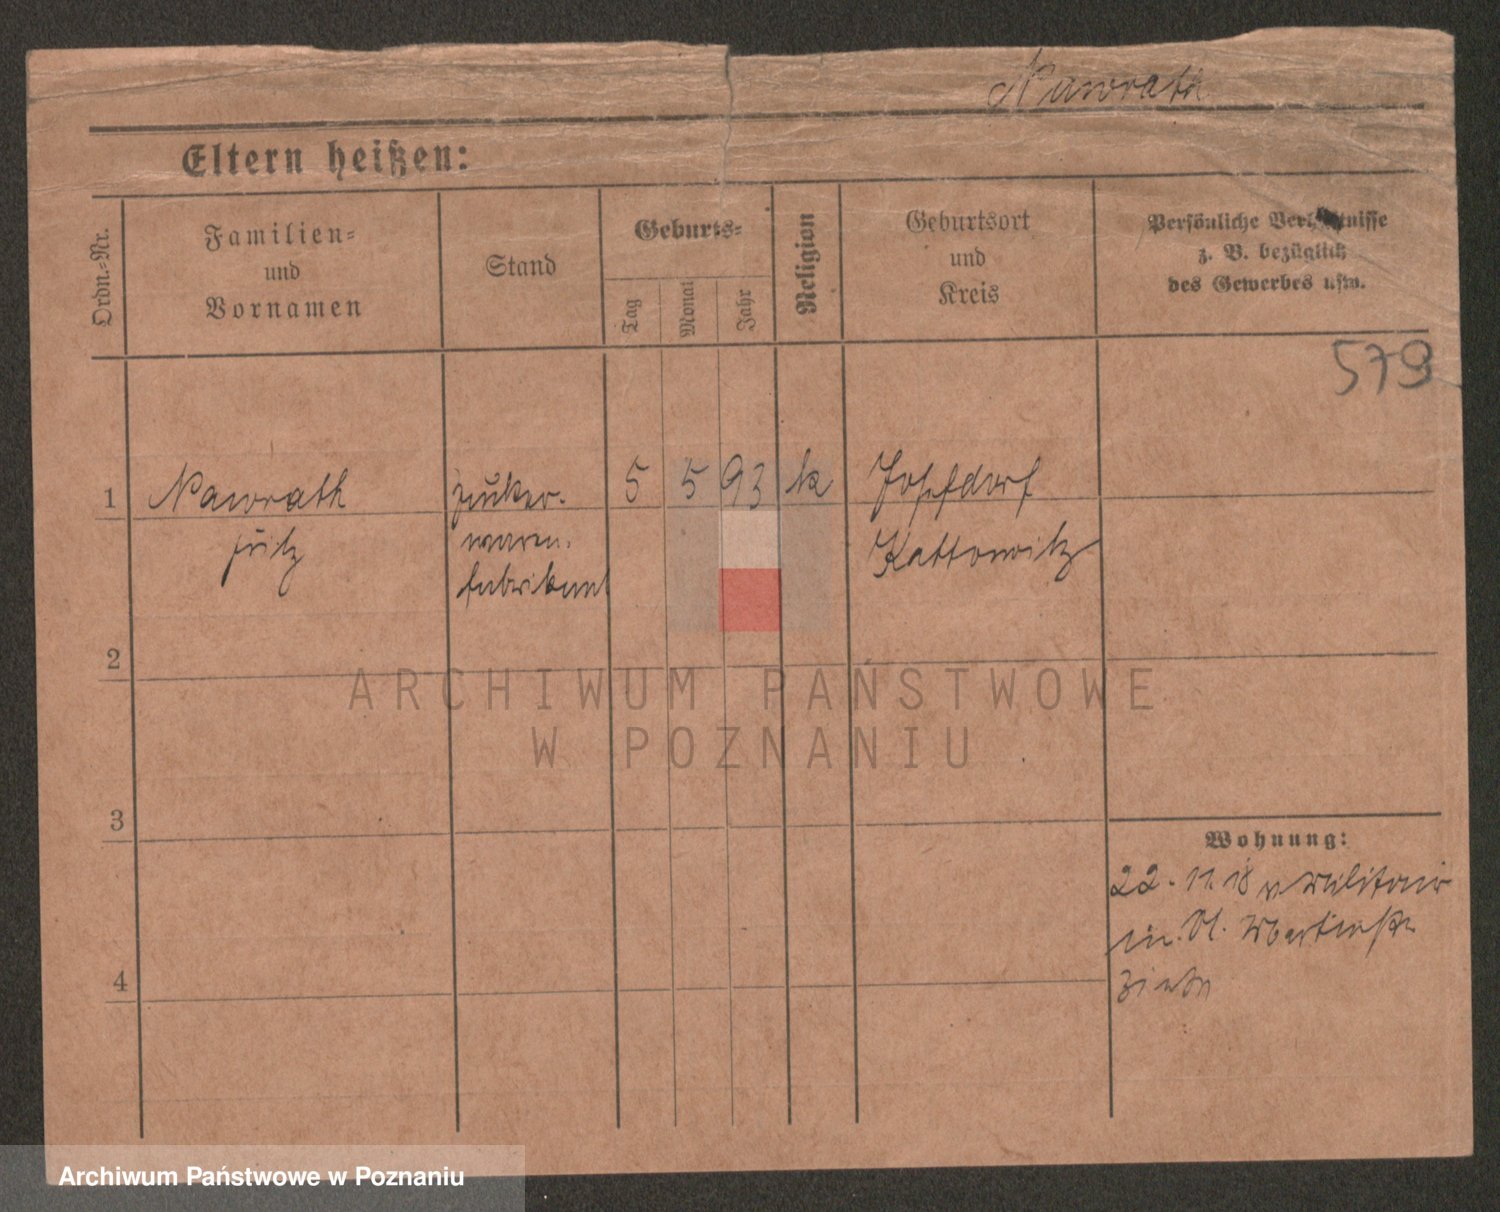 Nawrath
Eltern heißen:
Ordn.=Nr.
Familien=
und
Vornamen
Stand
Geburts=
Tag
Monat
Jahr
Religion
Geburtsort
und
Kreis
Persönliche Verhältnisse
z. B. bezüglich
des Gewerbes usw.
579
1
Nawrath
Zucker-
5
5
93
k
Josefdorf
Fritz
waren-
Kattowitz
fabrikant
2
ARCHIWUM PAŃSTWOWE
W POZNANIU
3
Wohnung:
22. 11. 18 v Militair
in. St.
4
Archiwum Państwowe w Poznaniu